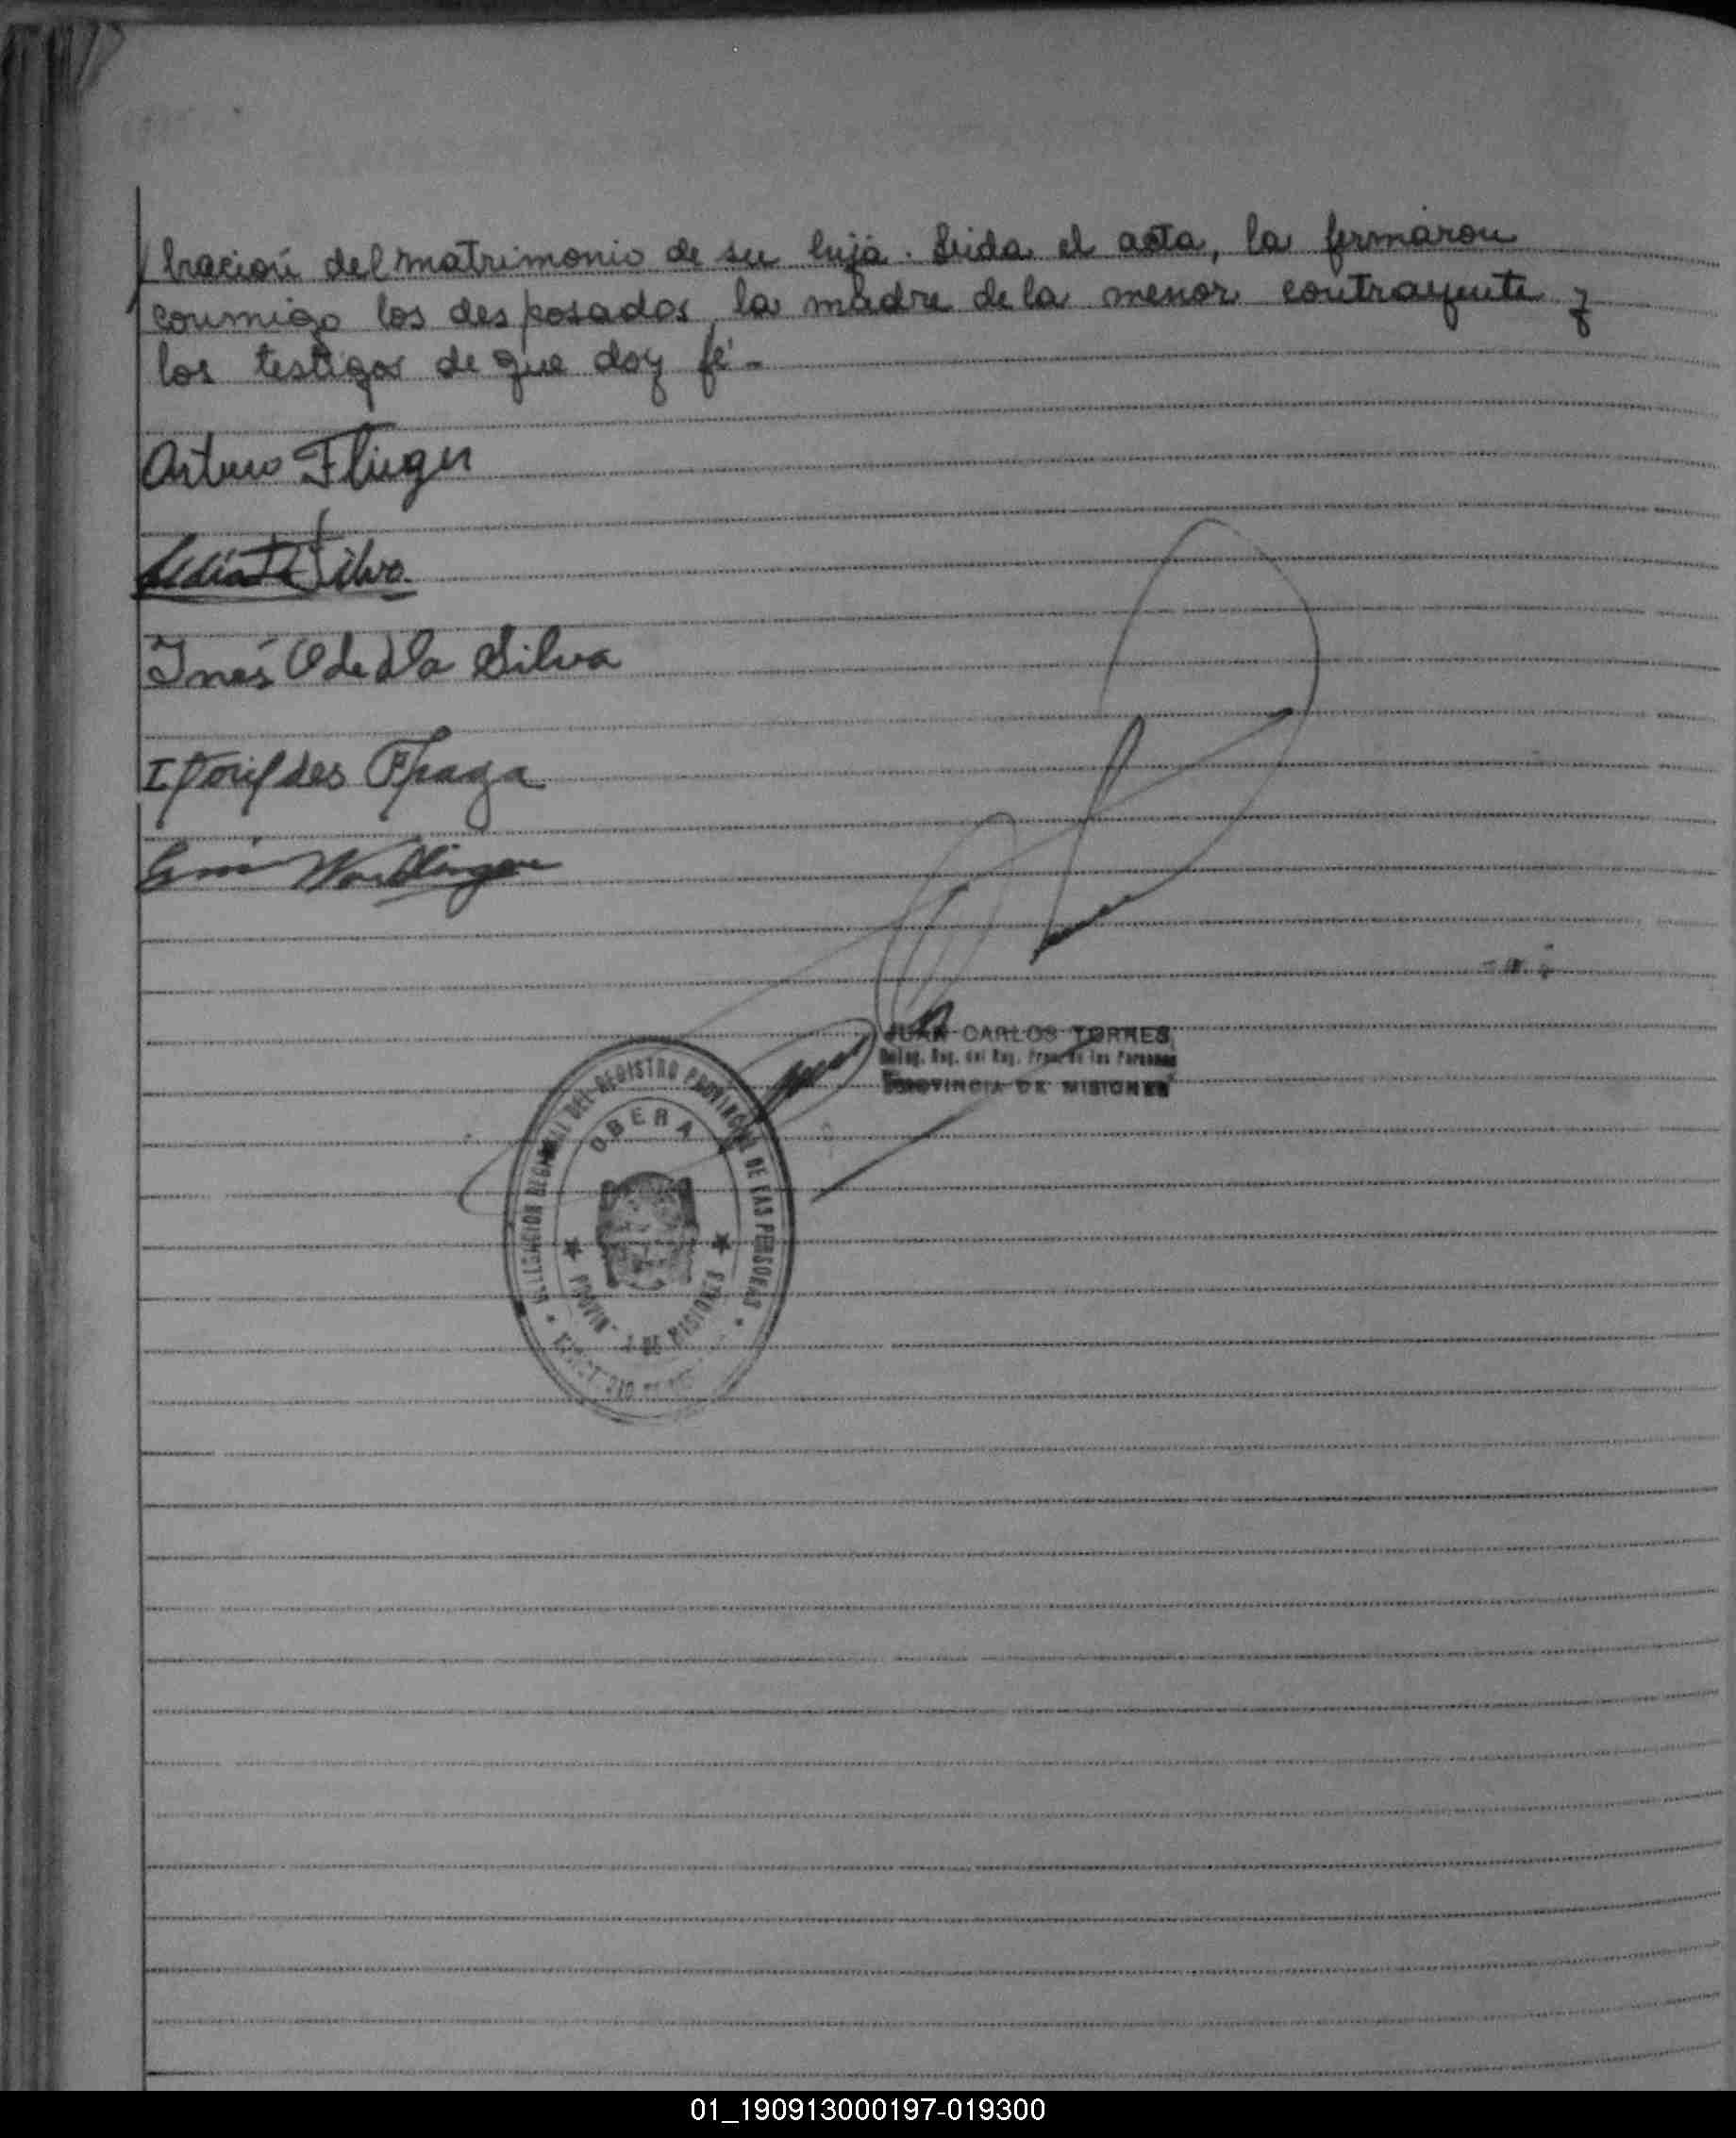 bración del matrimonio de su hija. Leida el acta, la firmaron
conmigo los desposados, la madre de la menor contrayente y
los testigos de que doy fé.-
Arturo Flieger
Silva
Inés O de Da Silva
Fraga
JUAN CARLOS TORRES
Deleg. Reg. del Reg. Prov. de las Personas
PROVINCIA DE MISIONES
DELEGACION REGIONAL DEL REGISTRO PROVINCIAL DE LAS PERSONAS
OBERA
DE MISIONES
01_190913000197-019300